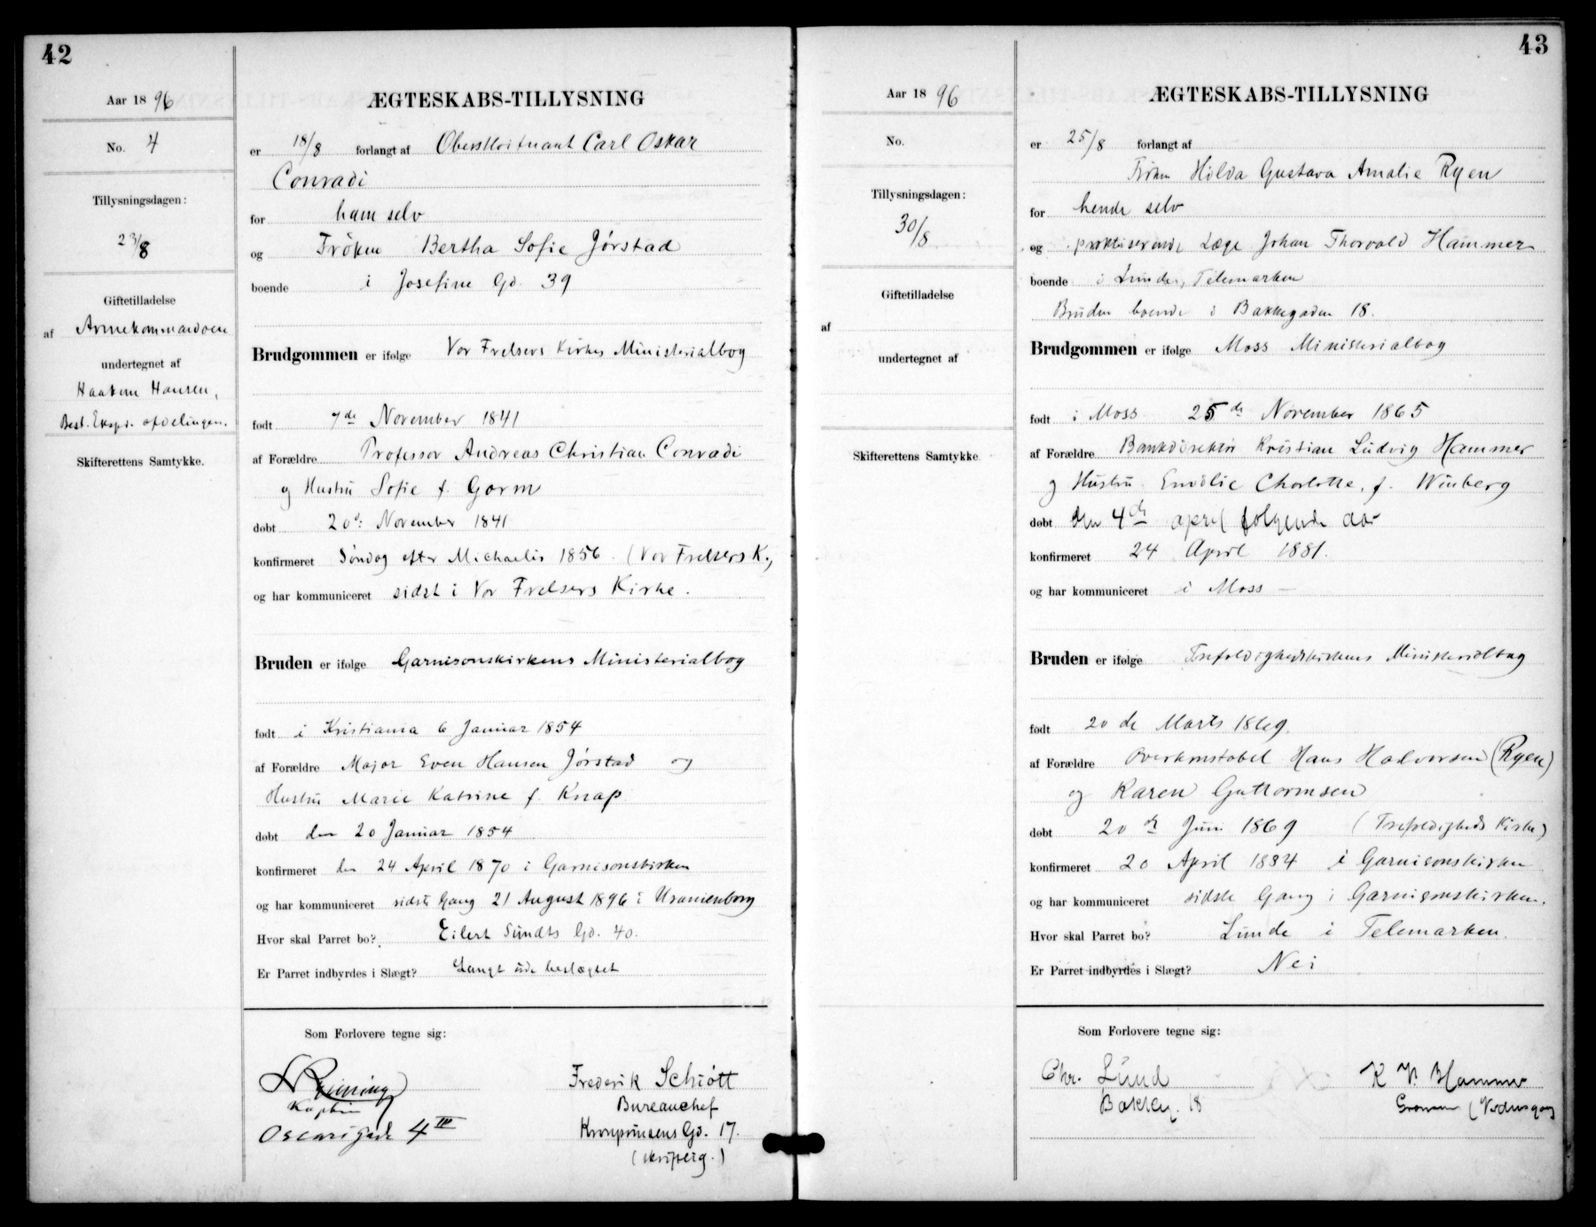 42
Aar 1896
No. 4
Tillysningsdagen:
23/8
Giftetilladelse
af Armekommandoen
undertegnet af
Haakon Hansen,
Best. Ekspd. afdelingen.
Skifterettens Samtykke.
ÆGTESKABS-TILLYSNING
er 18/8 forlangt af Oberstløitnant Carl Oskar
Conradi
for ham selv
og Frøken Bertha Sofie Jørstad
boende i Josefine Gd. 39
Brudgommen er ifølge Vor Frelsers Kirkes Ministerialbog
født 7de November 1841
af Forældre Professor Andreas Christian Conradi
og Hustru Sofie f. Gorm
døbt 20de November 1841
konfirmeret Søndag efter Michaelis 1856. (Vor Frelsers K.)
og har kommuniceret sidst i Vor Frelsers Kirke.
Bruden er ifølge Garnisonskirkens Ministerialbog
født i Kristiania 6 Januar 1854
af Forældre Major Even Hansen Jørstad og
Hustru Marie Katrine f. Knap
døbt den 20 Januar 1854
konfirmeret den 24 April 1870 i Garnisonskirken
og har kommuniceret sidste Gang 21 August 1896 i Uranienborg
Hvor skal Parret bo? Eilert Sundts Gd. 40.
Er Parret indbyrdes i Slægt? Langt ude beslægtet
Som Forlovere tegne sig:
Kaptein
Oscarsgade 4 III
Frederik Schiøtt
Bureauchef
Kronprinsens Gd. 17.
43
Aar 1896
No.
Tillysningsdagen:
30/8
Giftetilladelse
af
undertegnet af
Skifterettens Samtykke
ÆGTESKABS-TILLYSNING
er 25/8 forlangt af
Frøken Hilda Gustava Amalie Ryen
for hende selv
og praktiserende Læge Johan Thorvald Hammer
boende i Lunde, Telemarken
Bruden boende i Bakkegaden 18.
Brudgommen er ifølge Moss Ministerialbog
født i Moss 25de November 1865
af Forældre Bankdirektør Kristian Ludvig Hammer
og Hustru Emilie Charlotte, f. Winberg
døbt den 4de april følgende aar
konfirmeret 24 April 1881.
og har kommuniceret i Moss –
Bruden er ifølge Trefoldighedskirkens Ministerialbog
født 20de Marts 1869.
af Forældre Overkonstabel Hans Halvorsen (Ryen)
og Karen Guttormsen
døbt 20de Juni 1869 (Trefoldigheds Kirke)
konfirmeret 20 April 1884 i Garnisonskirken
og har kommuniceret sidste Gang i Garnisonskirken.
Hvor skal Parret bo? Lunde i Telemarken.
Er Parret indbyrdes i Slægt? Nei
Som Forlovere tegne sig:
Chr. Lund
Bakkeg. 18
K V. Hammer